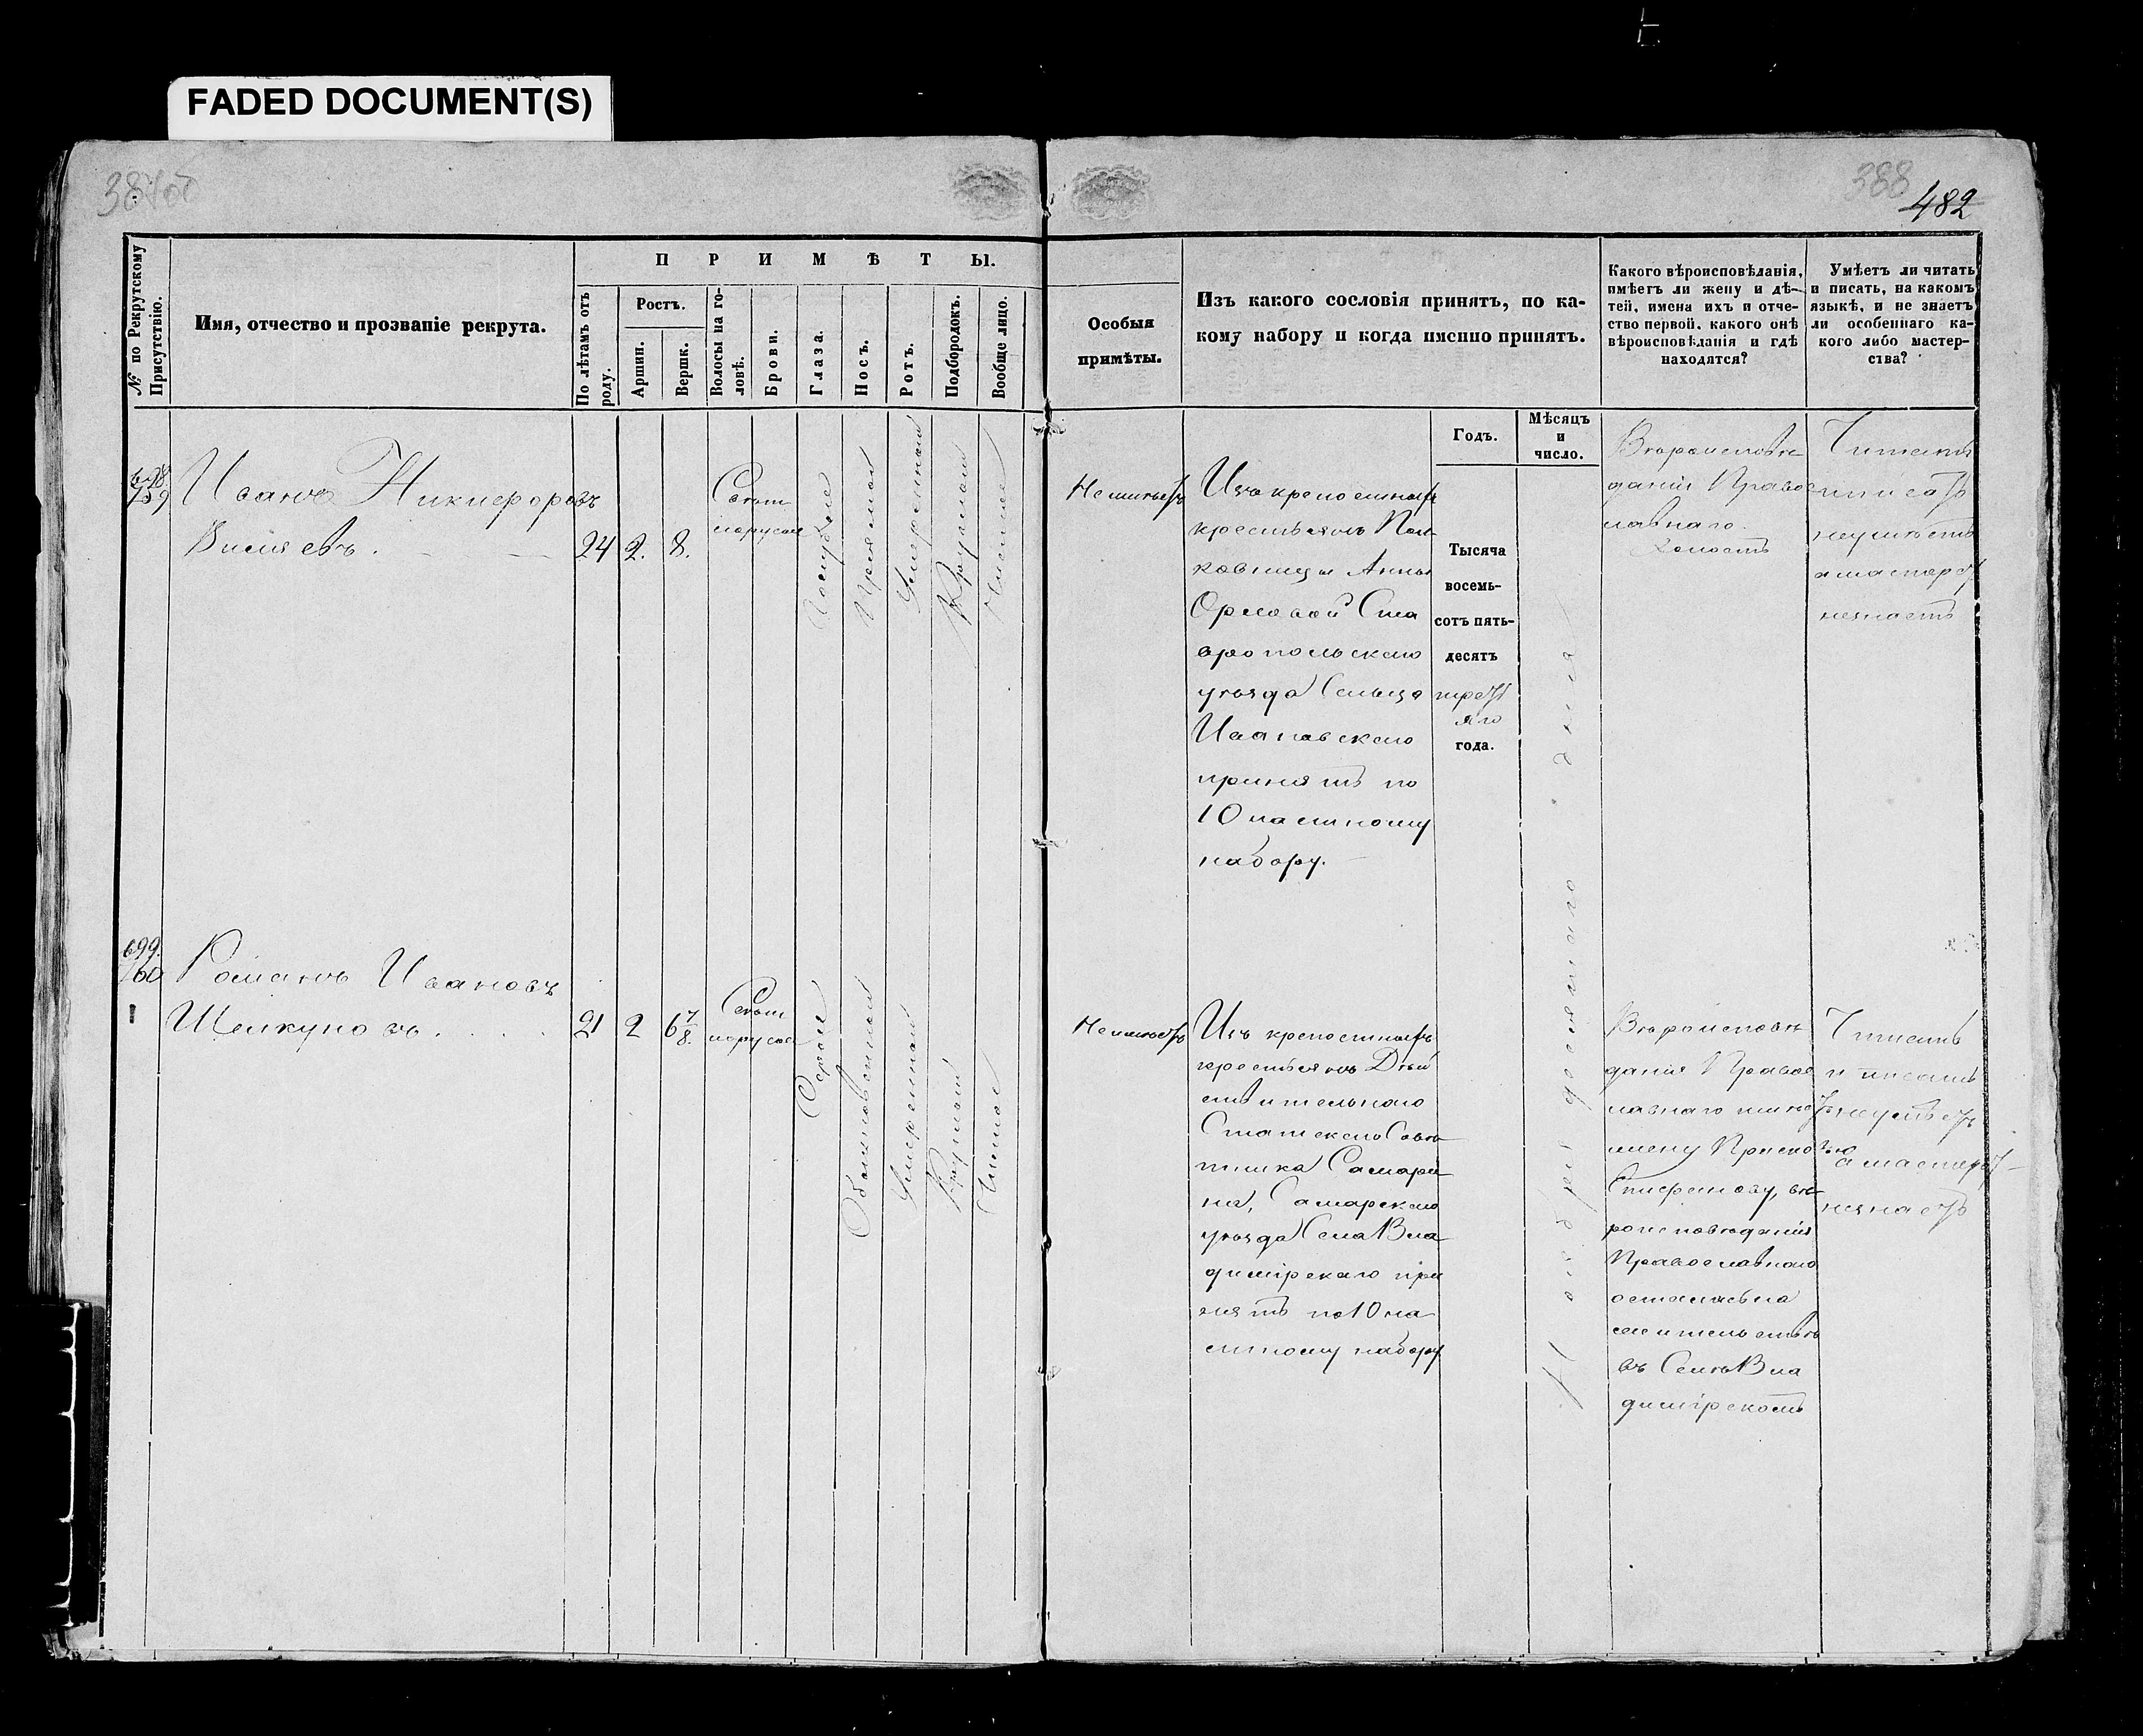 FADED DOCUMENT(S)
387об
388
482
№ по Рекрутскому Присутствію.
Имя, отчество и прозваніе рекрута.
ПРИМѢТЫ.
По лѣтамъ отъ роду.
Ростъ.
Аршин.
Вершк.
Волосы на головѣ.
Брови.
Глаза.
Носъ.
Ротъ.
Подбородокъ.
Вообще лицо.
Особыя
примѣты.
Изъ какого сословія принятъ, по ка-
кому набору и когда именно принятъ.
Какого вѣроисповѣданія,
имѣетъ ли жену и дѣ-
тей, имена ихъ и отче-
ство первой, какого онѣ
вѣроисповѣданія и гдѣ
находятся?
Умѣетъ ли читать
и писать, на какомъ
языкѣ, и не знаетъ
ли особеннаго ка-
кого либо мастер-
ства?
Годъ.
Мѣсяцъ
и
число.
698.
759
Иванъ Никифоровъ
24 2. 8.
Свѣт
лорусые
Голубые
Прямой
Умѣренный
Круглый
Чистое
Неимѣетъ
Изъ крепостныхъ
крестьянъ Пол
ковницы Анны
Орловой Ста
вропольскаго
уѣзда Сельца
Ивановскаго
принятъ по
10 частному
набору.
Тысяча
восемь-
сотъ пять-
десятъ
треть
яго
года.
Вѣроисповѣ
данія Правос
лавнаго
холостъ
Читать
и писать
неумѣетъ
а мастерст
незнаетъ
699.
760
Романъ Ивановъ
Шелкуновъ
21 2 6 7/8.
Свѣт
лорусые
Серые
Обыкновенный
Умѣренный
Круглый
Чистое
Неимѣетъ
Изъ крепостныхъ
крестьянъ Дѣй
ствительнаго
Статскаго Совѣ
тника Самари
на, Самарскаго
уѣзда Села Вла
димірскаго при
нятъ по 10 ча
стному набору
Вѣроисповѣ
данія Правос
лавнаго имѣетъ
жену Прасковью
Епифанову, вѣ
роисповѣданія
Православнаго
осталась на
жительствѣ
въ Селѣ Вла
димірскомъ
Читать
и писать
неумѣетъ
а мастерст
незнаетъ